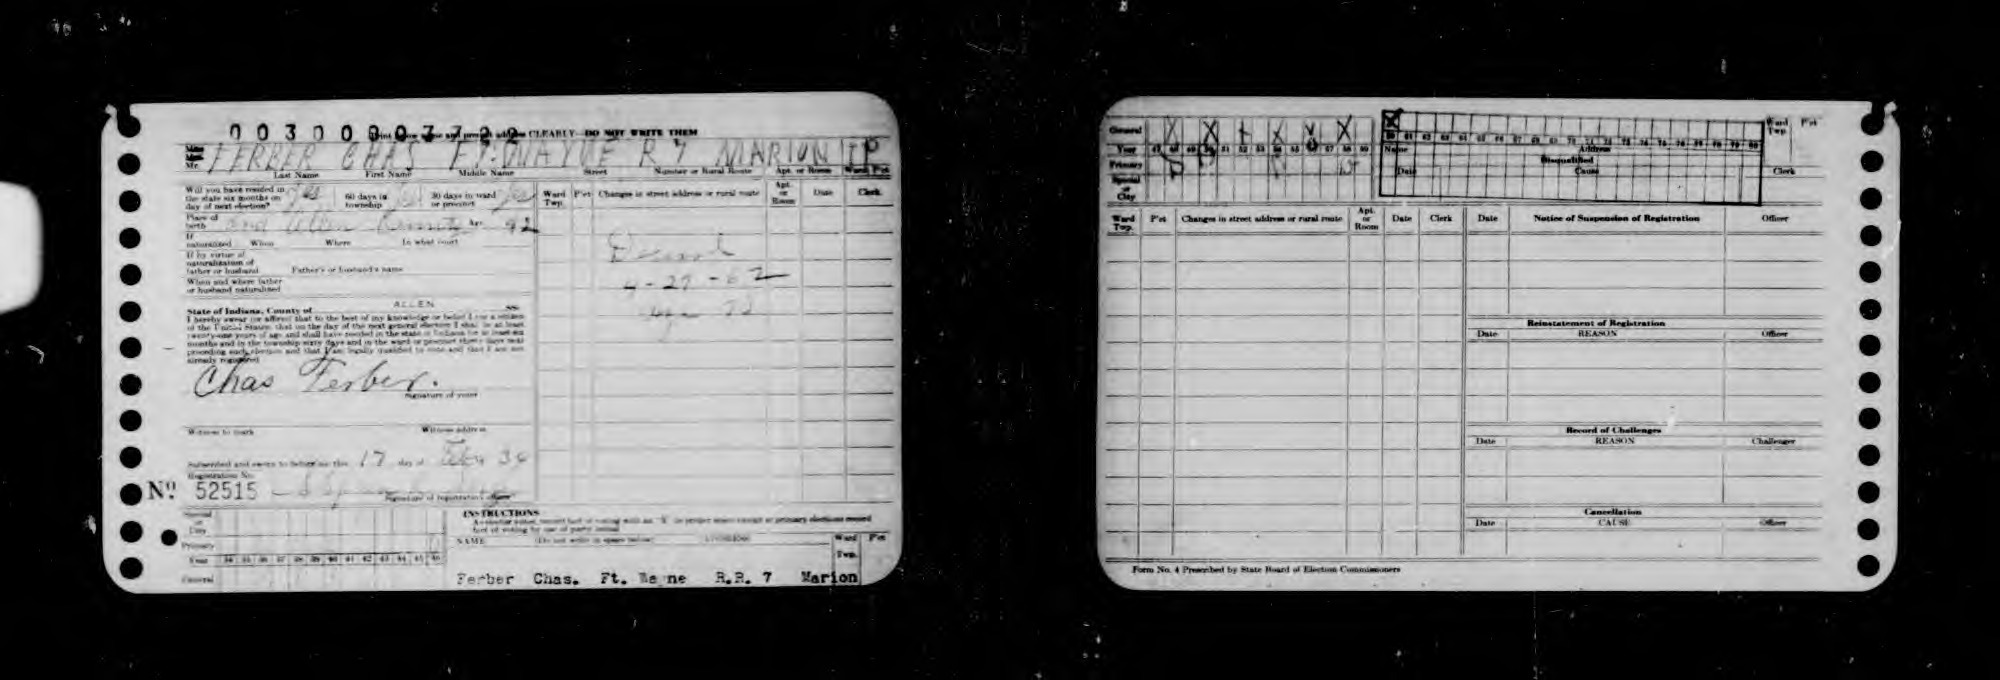 Print below name and present address CLEARLY—DO NOT WRITE THEM
Mr. FERBER CHAS FT. WAYNE R 7 MARION
Last Name First Name Middle Name Street Number or Rural Route Apt. or Room Ward P'ct
Will you have resided in the state six months on day of next election? Yes 60 days in township 30 days in ward or precinct
Place of birth Ind Allen County Age 42
If naturalized When Where In what court
If by virtue of naturalization of father or husband Father's or husband's name
When and where father or husband naturalized
State of Indiana, County of ALLEN ss:
I hereby swear (or affirm) that to the best of my knowledge or belief I am a citizen
of the United States, that on the day of the next general election I shall be at least
twenty-one years of age and shall have resided in the state of Indiana for at least six
months and in the township sixty days and in the ward or precinct thirty days next
preceding such election and that I am legally qualified to vote and that I am not
already registered
Chas Ferber.
Signature of voter
Witness to mark Witness address
Subscribed and sworn to before me this 17 day of
Registration No.
No. 52515
Signature of registration officer
Ward Twp. P'ct Changes in street address or rural route Apt. or Room Date Clerk
4-27-62
Special or City
Primary
Year 34 35 36 37 38 39 40 41 42 43 44 45 46
General
INSTRUCTIONS
NAME (Do not write in space below)
Ward Twp. P'ct
Ferber Chas. Ft. Wayne R.R. 7 Marion
General X X X X X
Year 47 48 49 50 51 52 53 54 55 56 57 58 59
Primary
Special or City
X
60 61 62 63 64 65 66 67 68 69 70 71 72 73 74 75 76 77 78 79 80
Name Address
Disqualified
Date Cause
Ward Twp. P'ct
Clerk
Ward Twp. P'ct Changes in street address or rural route Apt. or Room Date Clerk
Date Notice of Suspension of Registration Officer
Reinstatement of Registration
Date REASON Officer
Record of Challenges
Date REASON Challenger
Cancellation
Date CAUSE Officer
Form No. 4 Prescribed by State Board of Election Commissioners